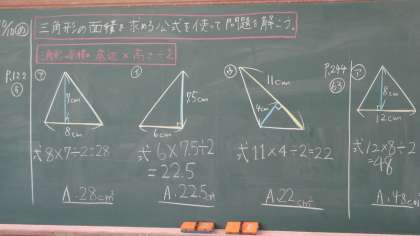 三角形の面積を求める公式を使って問題を解こう。
三角形の面積=底辺×高さ÷2
P.122
⑥
ア
7cm
8cm
式 8×7÷2=28
A.28cm²
イ
7.5cm
6cm
式 6×7.5÷2
=22.5
A.22.5
ウ
11cm
4cm
式 11×4÷2=22
A.22cm²
P.244
ア
8cm
12cm
式 12×8÷2
=48
A.48cm